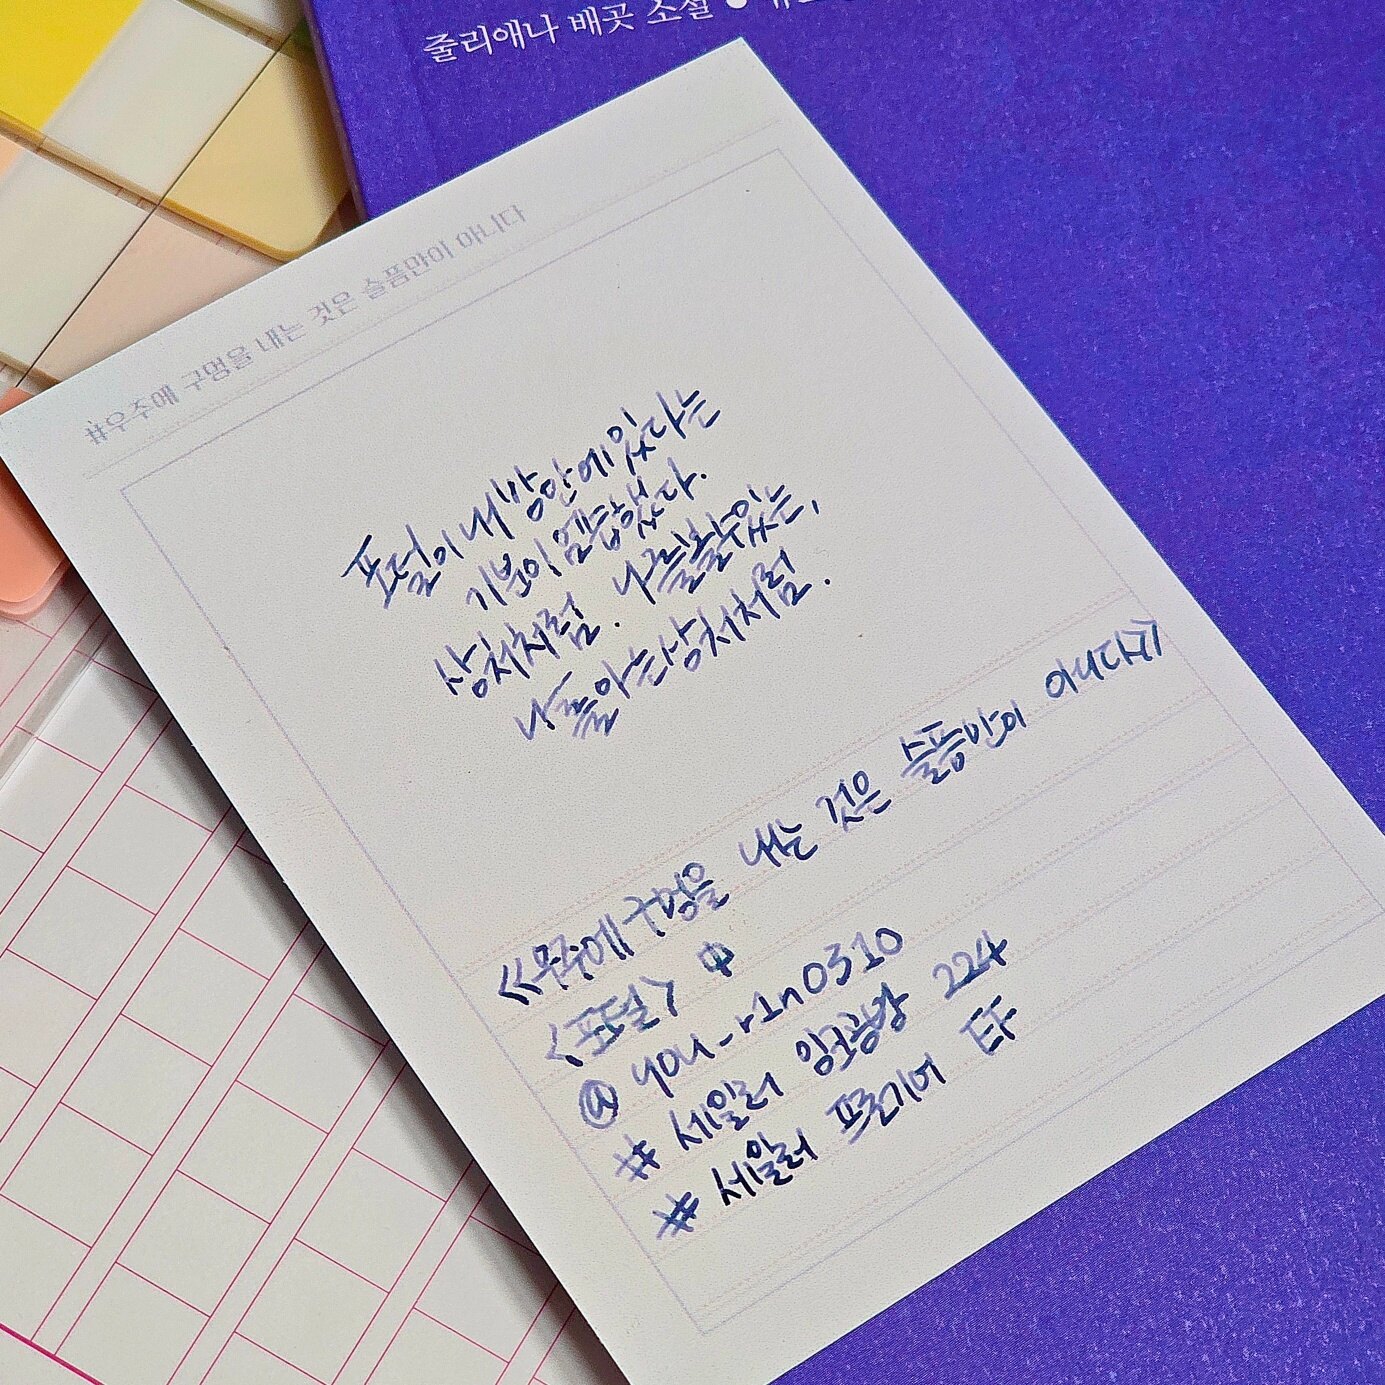 줄리애나 배곳 소설
#우주에 구멍을 내는 것은 슬픔만이 아니다
포털이 내 방 안에 있다는
기분이 엄습했다.
상처처럼. 나를 볼 수 있는,
나를 아는 상처처럼.
《우주에 구멍을 내는 것은 슬픔만이 아니다》
<포털> 中
# 세일러 잉크공방 224
# 세일러 프로기어 EF